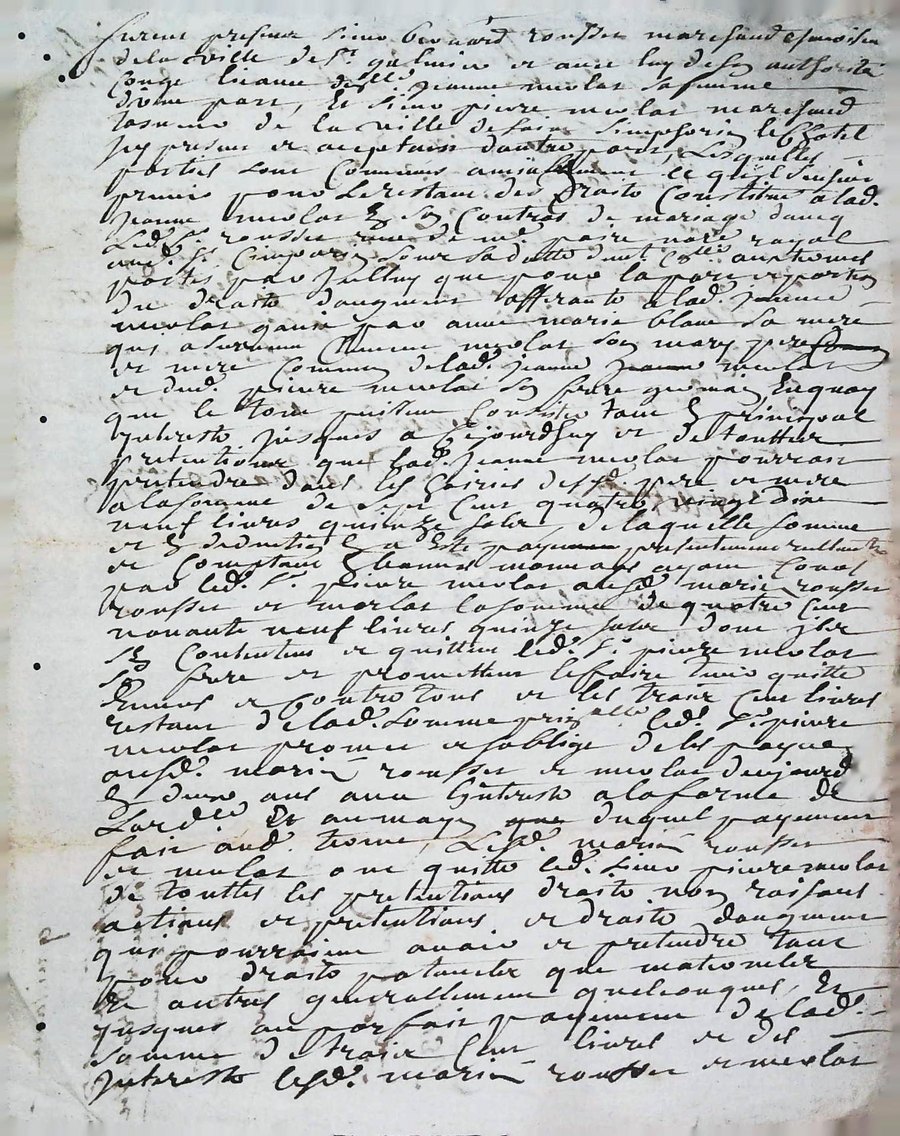 furent presens sieur bernard rousset marchand
de la ville de St galmier et avec luy de son authorité
Congé licance delle Jeanne nicolas sa femme
d'une part, Et sieur pierre nicolas marchand
de la ville de Saint Simphorien le Chatel
Icy present et acceptant dautre part, Lesquelles
parties sont Convenues amiablement ce quil sensuit
premis pour le restant des droits Constitué a lad.
Jeanne nicolas En son Contrat de mariage davec
Led. Sr rousset royal
aud. St Simporien Sous sa datte aux termes
portés par Iceluy que pour la part et portion
du droits daugment afferants a lad. Jeanne
nicolas par anne marie blanc sa mere
qui a survecu nicolas son mary pere
et mere Communs de lad. Jeanne nicolas
et dud. pierre nicolas son frere germain, En quoy
que le tout puissent Consister tant En principal
Interests Jusques a Cejourdhuy et de touttes
pretentions que lad. Jeanne nicolas pourroit
pretendre dans les hoiries desd. pere et mere
a la somme de Sept Cent quatre vingt dix
neuf livres quinze sols, de laquelle somme
et En deduction En a Esté presentement reellement
et Comptant En bonnes monnoyes ayant Cours
par led. Sr pierre nicolas ausd. mariés rousset
rousset et nicolas la somme de quatre Cent
nonante neuf livres quinze sols dont Ils
se Contentent et quittent led. Sr pierre nicolas
frere et promettent le faire tenir quitte
Envers et Contre tous et les trois Cent livres
restant de lad. somme led. Sr pierre
nicolas promet et soblige de les payer
ausd. mariés rousset et nicolas dunjourd
En deux ans avec Interests a la forme de
Lord.ce Et au moyen duquel payement
fait aud. terme, Lesd. mariés rousset
et nicolas ont quitté led. sieur pierre nicolas
de touttes les pretentions droits noms raisons
actions et pretentions et droits daugment
qui pourroient avoir et pretendre tant
pour droits paternels que maternels
Et autres generallement quelconques, Et
jusques au parfait payement de lad.
somme de trois Cent livres et des
Interests lesd. mariés rousset et nicolas